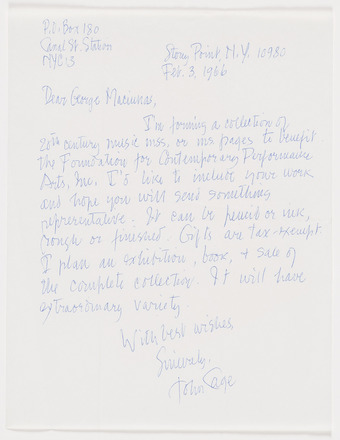 P.O. Box 180
Canal St. Station
NYC 13
Stony Point, N.Y. 10980
Feb. 3, 1966
Dear George Maciunas,
I'm forming a collection of
20th century music mss. or ms pages to benefit
the Foundation for Contemporary Performance
Arts, Inc. I'd like to include your work
and hope you will send something
representative. It can be pencil or ink,
rough or finished. Gifts are tax-exempt.
I plan an exhibition, book, + sale of
the complete collection. It will have
extraordinary variety.
With best wishes,
Sincerely,
John Cage